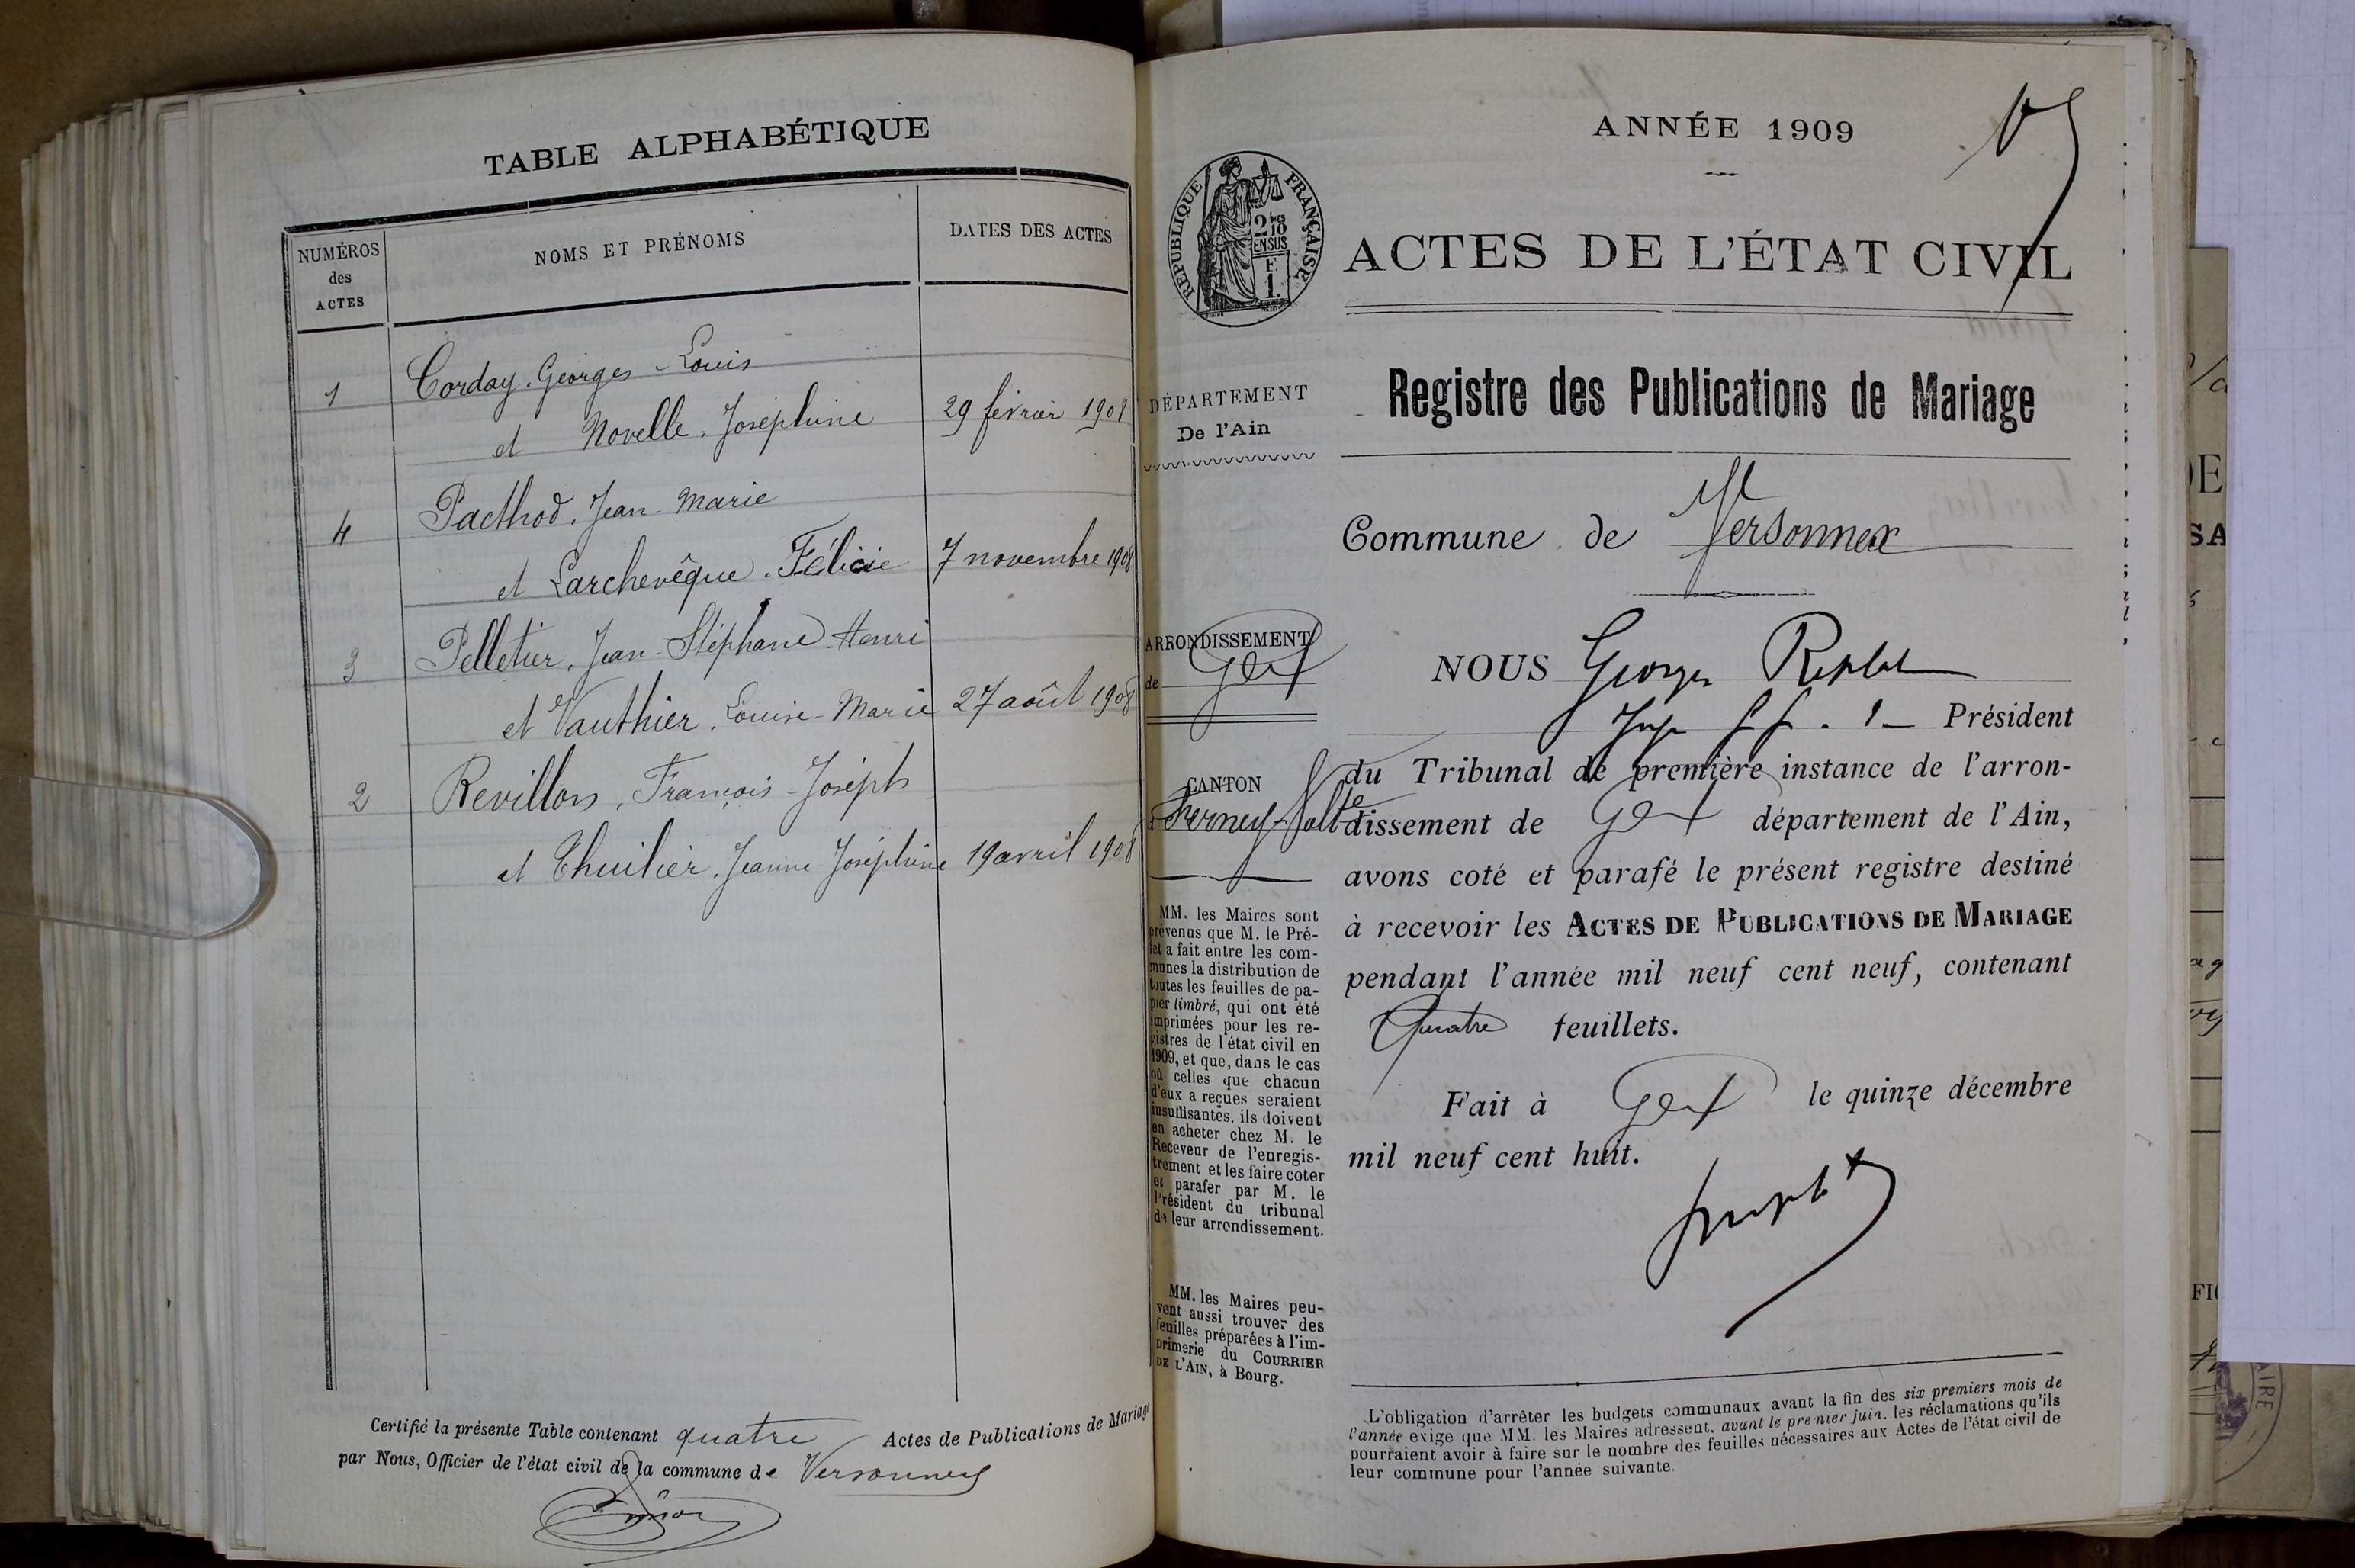 TABLE ALPHABÉTIQUE
NUMÉROS
des
ACTES
NOMS ET PRÉNOMS
DATES DES ACTES
1 Corday, Georges-Louis
et Novelle, Joséphine 29 février 1908
4 Pacthod, Jean-Marie
et Larchevêque, Félicie 7 novembre 1908
3 Pelletier, Jean-Stéphane-Henri
et Vauthier, Louise-Marie 27 août 1908
2 Revillon, François-Joseph
et Thuilier, Jeanne-Joséphine 19 avril 1908
Certifié la présente Table contenant quatre Actes de Publications de Mariage
par Nous, Officier de l'état civil de la commune de Versonnex
ANNÉE 1909
RÉPUBLIQUE FRANÇAISE
2 10 mes
EN SUS
F.
1.
ACTES DE L'ÉTAT CIVIL
DÉPARTEMENT
De l'Ain
Registre des Publications de Mariage
Commune de Versonnex
ARRONDISSEMENT
de Gex
CANTON
Ferney-Volt
NOUS Georges
Juge Président
du Tribunal de première instance de l'arron-
dissement de Gex département de l'Ain,
avons coté et parafé le présent registre destiné
à recevoir les ACTES DE PUBLICATIONS DE MARIAGE
pendant l'année mil neuf cent neuf, contenant
Quatre feuillets.
Fait à Gex le quinze décembre
mil neuf cent huit.
MM. les Maires sont
prévenus que M. le Pré-
fet a fait entre les com-
munes la distribution de
toutes les feuilles de pa-
pier timbré, qui ont été
imprimées pour les re-
gistres de l'état civil en
1909, et que, dans le cas
où celles que chacun
d'eux a reçues seraient
insuffisantes, ils doivent
en acheter chez M. le
Receveur de l'enregis-
trement et les faire coter
et parafer par M. le
Président du tribunal
de leur arrondissement.
MM. les Maires peu-
vent aussi trouver des
feuilles préparées à l'im-
primerie du COURRIER
DE L'AIN, à Bourg.
L'obligation d'arrêter les budgets communaux avant la fin des six premiers mois de
l'année exige que MM. les Maires adressent, avant le premier juin, les réclamations qu'ils
pourraient avoir à faire sur le nombre des feuilles nécessaires aux Actes de l'état civil de
leur commune pour l'année suivante.